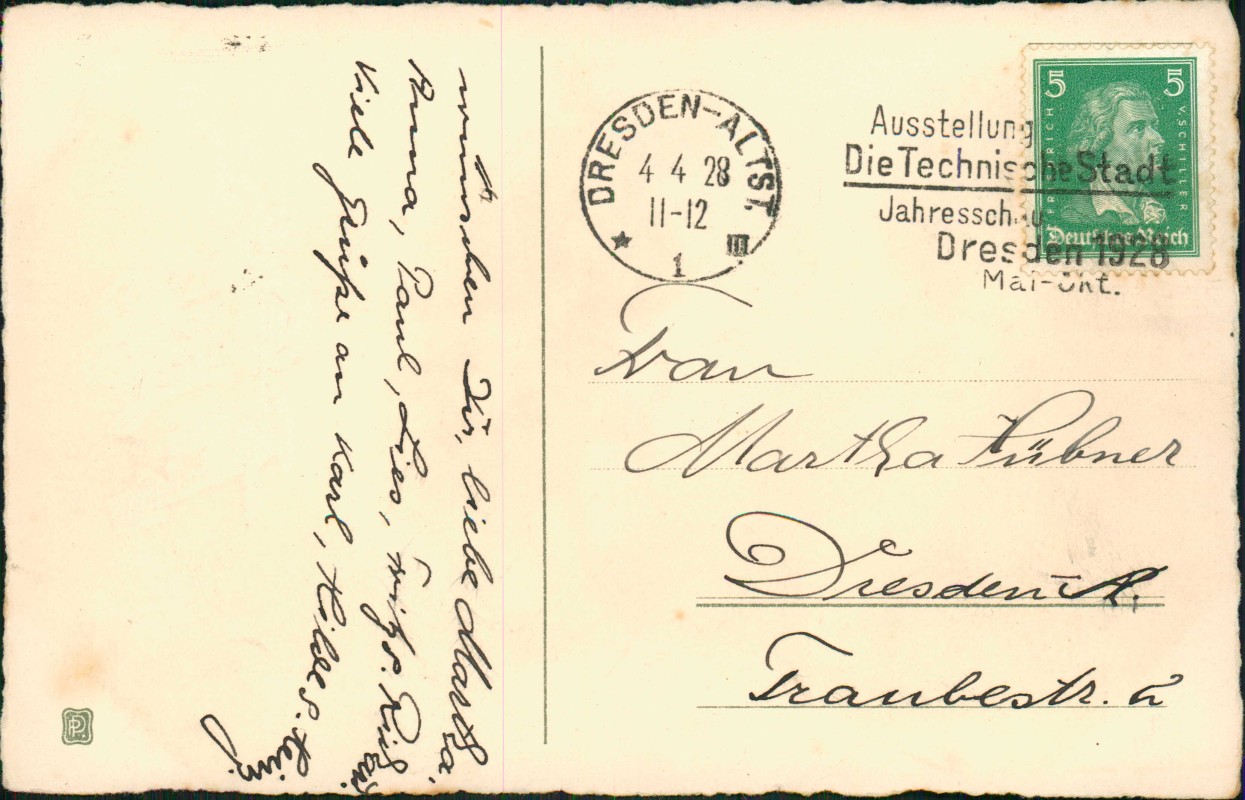 wünschen Dir, liebe Martha
Anna, Paul, Lies,
Viele Grüße an Karl, Hilde u.
DRESDEN-ALTST.
4 4 28
11-12
1
III
Ausstellung
Die Technische Stadt
Jahresschau
Dresden 1928
Mai-Okt.
5 5
FRIEDRICH V. SCHILLER
Deutsches Reich
Frau
Martha Hübner
Dresden-A.
Traubestr.